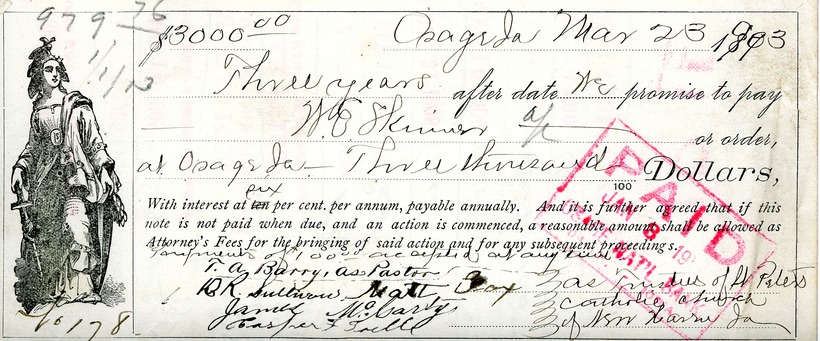 979 76
1/1/13
$3000 00 Osage Ia Mar 23 1903
Three years after date We promise to pay
W E Skinner or order,
at Osage Ia — Three thousand 100 Dollars,
six
With interest at ten per cent. per annum, payable annually. And it is further agreed that if this
note is not paid when due, and an action is commenced, a reasonable amount shall be allowed as
Attorney's Fees for the bringing of said action and for any subsequent proceedings.
Payments of accepted at any time
T. A. Barry, as Pastor
Sullivan Matt as Trustees of St Peters
James McCarty Catholic church
Casper of New Haven Ia
No 178
PAID
JAN 6 19
NATL BANK